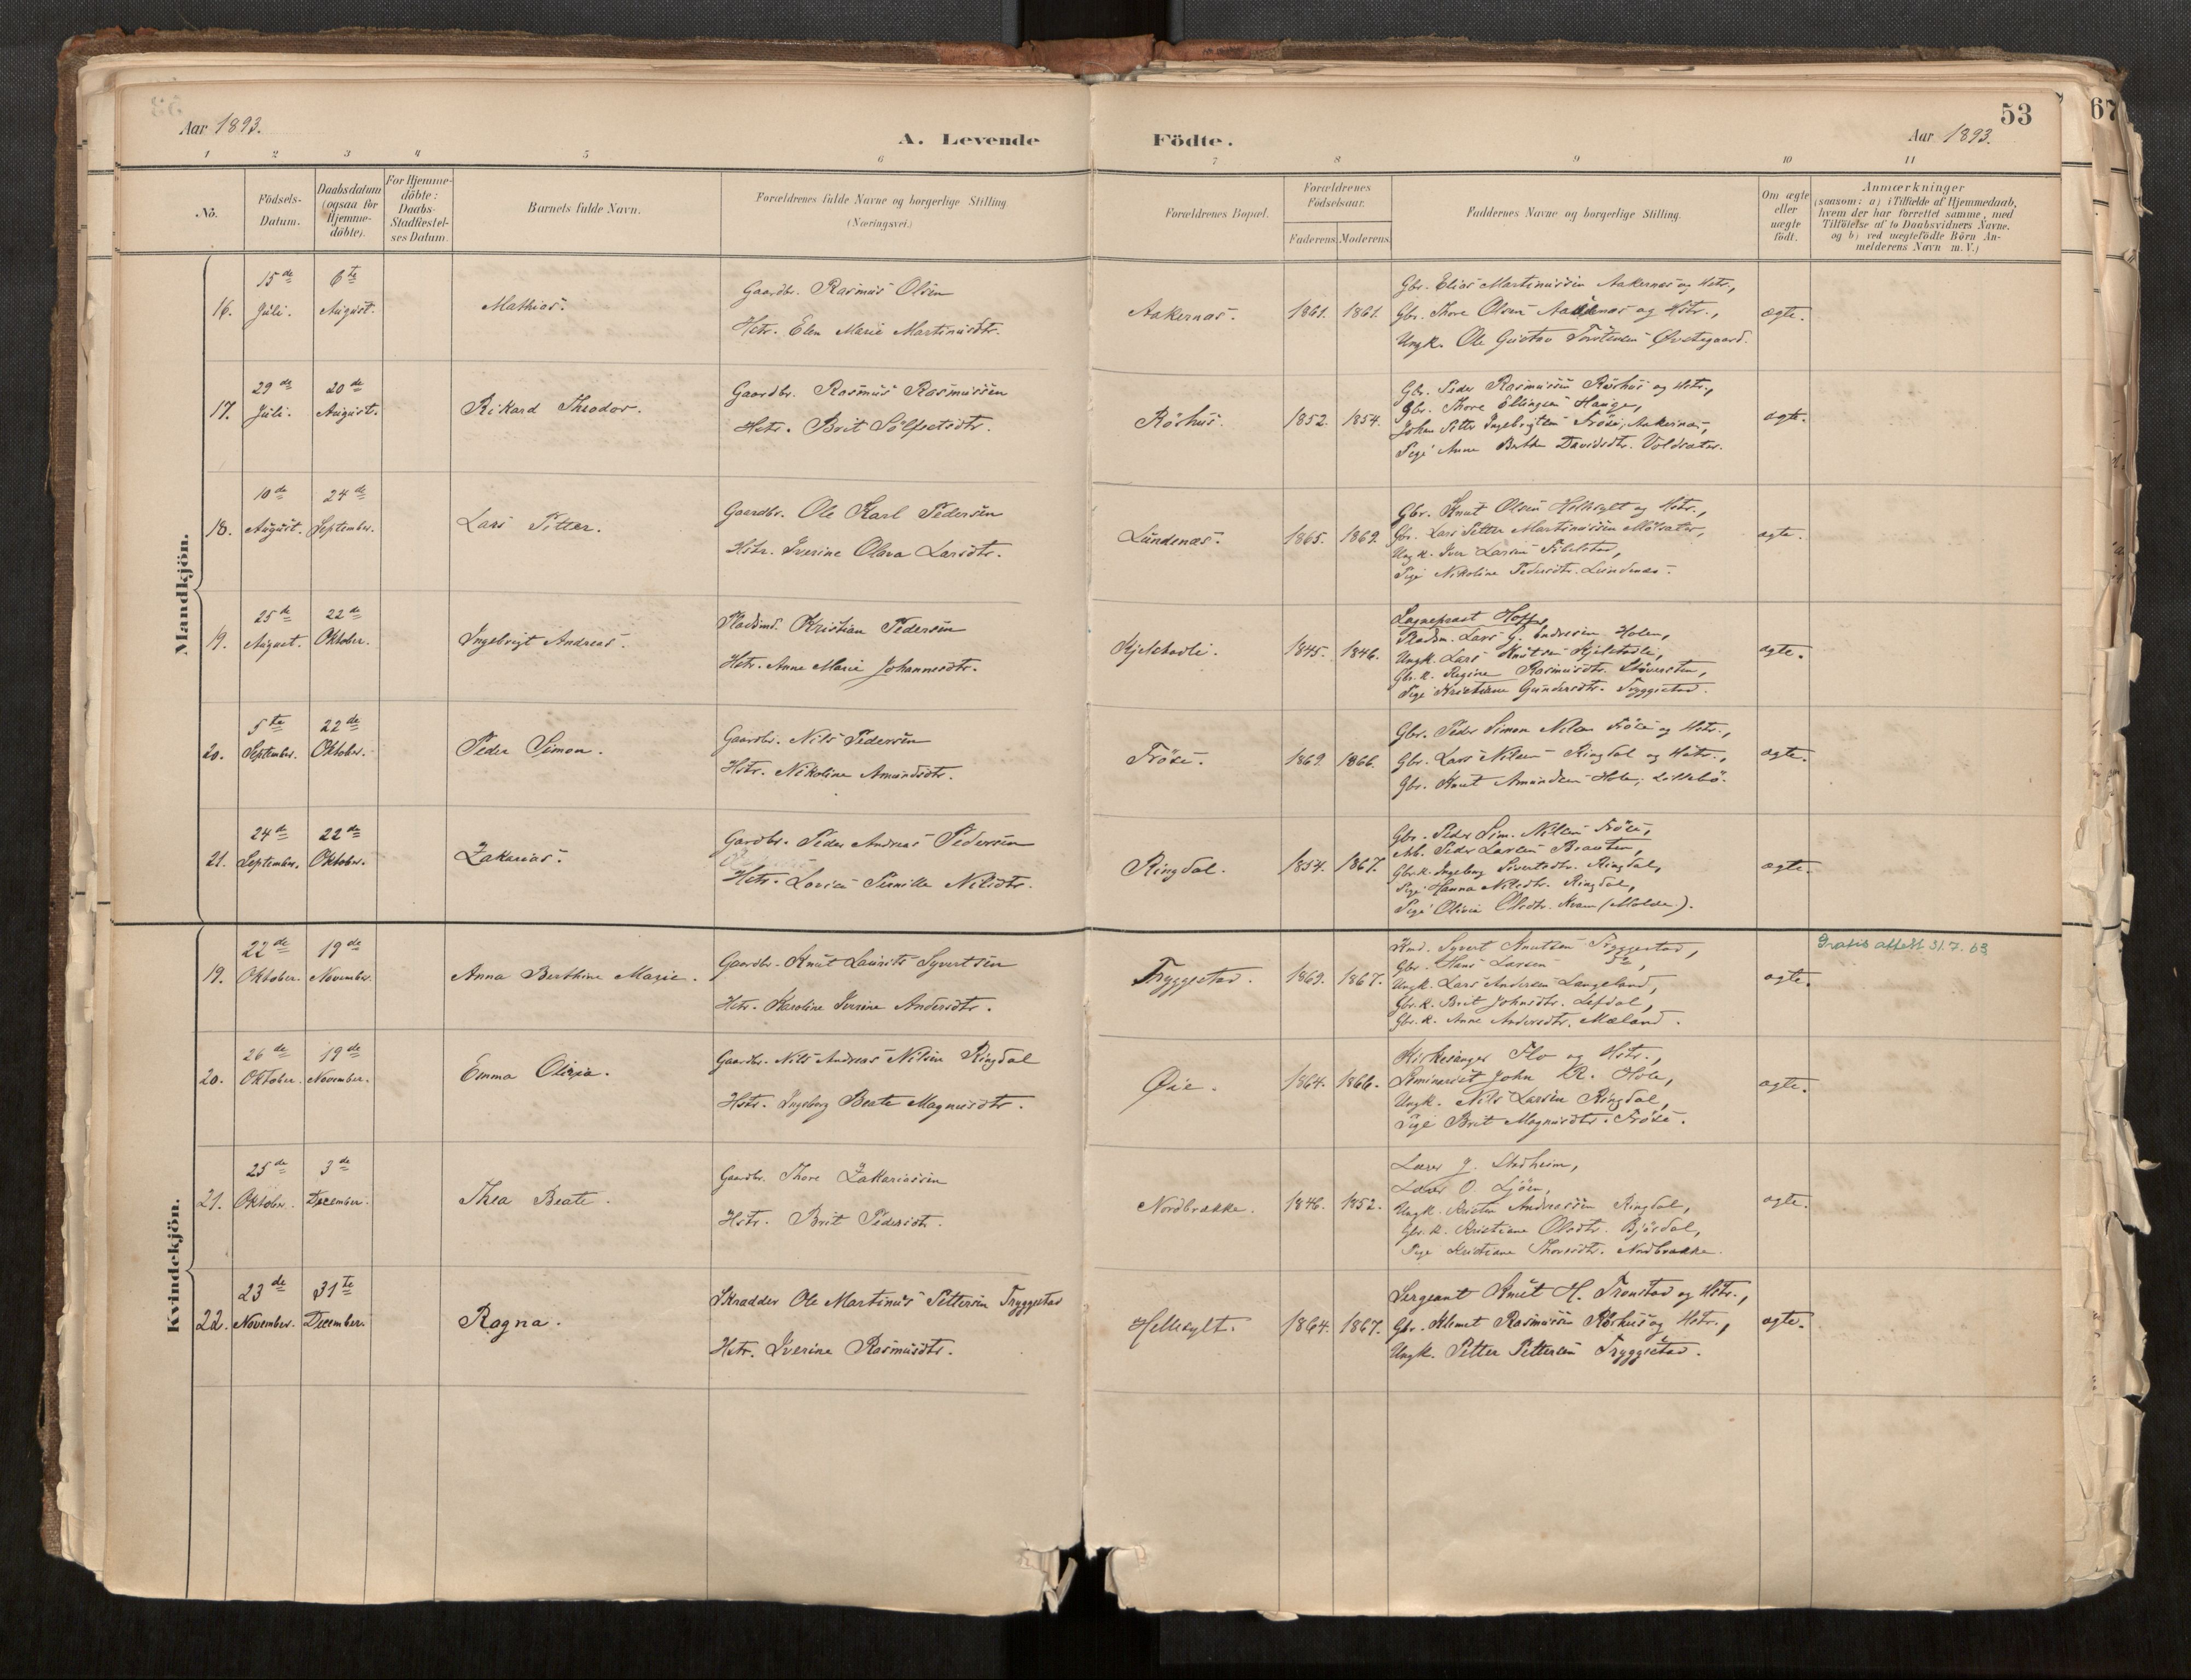 53
67
Aar 1893.
A. Levende Födte.
Aar 1893.
1 2 3 4 5 6 7 8 9 10 11
Nö.
Födsels-Datum.
Daabsdatum (ogsaa for Hjemme-döbte).
For Hjemme-döbte: Daabs-Stadfæstel-ses Datum.
Barnets fulde Navn.
Forældrenes fulde Navne og borgerlige Stilling (Næringsvei.)
Forældrenes Bopæl.
Forældrenes Födselsaar.
Faderens. Moderens.
Faddernes Navne og borgerlige Stilling.
Om ægte eller uægte födt.
Anmærkninger (saasom: a) i Tilfælde af Hjemmedaab, hvem der har forrettet samme, med Tilföielse af to Daabsvidners Navne. og b) ved uægtefödte Börn An-melderens Navn m. V.)
Mandkjön.
16. 15de Juli. 6te August. Mathias.
Gaardbr. Rasmus Olsen
Hstr. Elen Marie Martinusdtr.
Aakernæs. 1861. 1861.
Gbr. Elias Martinussen Aakernæs og Hstr.,
Gbr. Thore Olsen Aakernæs og Hstr.,
Ungk. Ole Gustav Torstensen Øvstegaard.
ægte.
17. 29de Juli. 20de August. Rikard Theodor.
Gaardbr. Rasmus Rasmussen
Hstr. Brit Sölfestsdtr.
Röshus. 1852. 1854.
Gbr. Peder Rasmussen Röshus og Hstr.,
Gbr. Thore Ellingsen Hauge,
Johan Petter Ingebrigtsen Fröse, Aakernæs,
Pige Anne Berthe Davidsdtr. Voldsæter.
ægte.
18. 10de August. 24de September. Lars Petter.
Gaardbr. Ole Karl Pedersen
Hstr. Iverine Olava Larsdtr.
Lundenæs. 1865. 1869.
Gbr. Knut Olsen Hellesylt og Hstr.,
Gbr. Lars Petter Martinussen Molsæter,
Ungk. Iver Larsen Fibelstad,
Pige Nikoline Pedersdtr. Lundenæs.
ægte.
19. 25de August. 22de Oktober. Ingebrigt Andreas.
Pladsmd. Kristian Pedersen
Hstr. Anne Marie Johannesdtr.
Kjelstadli. 1845. 1846.
Sognepræst Hoff,
Pladsm. Lars G. Endresen Holen,
Ungk. Lars Knutsen Kjelstadli,
Gbr.k. Regine Rasmusdtr. Stöversten,
Pige Kristiane Gundersdtr. Tryggestad.
ægte.
20. 5te September. 22de Oktober. Peder Simon.
Gaardbr. Nils Pedersen
Hstr. Nikoline Amundsdtr.
Fröse. 1869. 1866.
Gbr. Peder Simon Nilsen Fröse og Hstr.,
Gbr. Lars Nilsen Ringdal og Hstr.,
Gbr. Knut Amundsen Hole, Lillebö.
ægte.
21. 24de September. 22de Oktober. Zakarias.
Gardbr. Peder Andreas Pedersen
Hstr. Lovise Pernille Nilsdtr.
Ringdal. 1854. 1867.
Gbr. Peder Sim. Nilsen Fröse,
Arb. Peder Larsen Brauten,
Gbr.k. Ingeborg Sivertsdtr. Ringdal,
Pige Hanna Nilsdtr. Ringdal,
Pige Olivie Olsdtr. Kvam (Molde).
ægte.
Kvindekjön.
19. 22de Oktober. 19de November. Anna Berthine Marie.
Gaardbr. Knut Laurits Syvertsen
Hstr. Karoline Iverine Andersdtr.
Tryggestad. 1869. 1867.
Kmd. Syvert Knutsen Tryggestad,
Gbr. Hans Larsen
Ungk. Lars Andersen Langeland,
Gbr.k. Brit Johnsdtr. Lefdal,
Gbr.k. Anne Andersdtr. Mæland.
ægte.
Gratis attest 31.7.63
20. 26de Oktober. 19de November. Emma Olivia.
Gaardbr. Nils Andreas Nilsen Ringdal
Hstr. Ingeborg Beate Magnusdtr.
Øie. 1864. 1866.
Kirkesanger Flo og Hstr.,
Seminarist John R. Hole,
Ungk. Nils Larsen Ringdal,
Pige Brit Magnusdtr. Fröse.
ægte.
21. 25de Oktober. 3de December. Thea Beate.
Gaardbr. Thore Zakariassen
Hstr. Brit Pedersdtr.
Nordbrække. 1846. 1852.
Lærer J. Stadheim,
Lærer O. Ljöen,
Ungk. Andreassen Ringdal,
Gbr.k. Kristiane Olsdtr. Bjösdal,
Pige Kristiane Thoresdtr. Nordbrække.
ægte.
22. 23de November. 31te December. Ragna.
Skrædder Ole Martinus Pettersen Tryggestad
Hstr. Iverine Rasmusdtr.
Hellesylt. 1864. 1867.
Sergeant Knut H. Tronstad og Hstr.,
Gbr. Klemet Rasmussen Röshus og Hstr.,
Ungk. Petter Pettersen Tryggestad.
ægte.